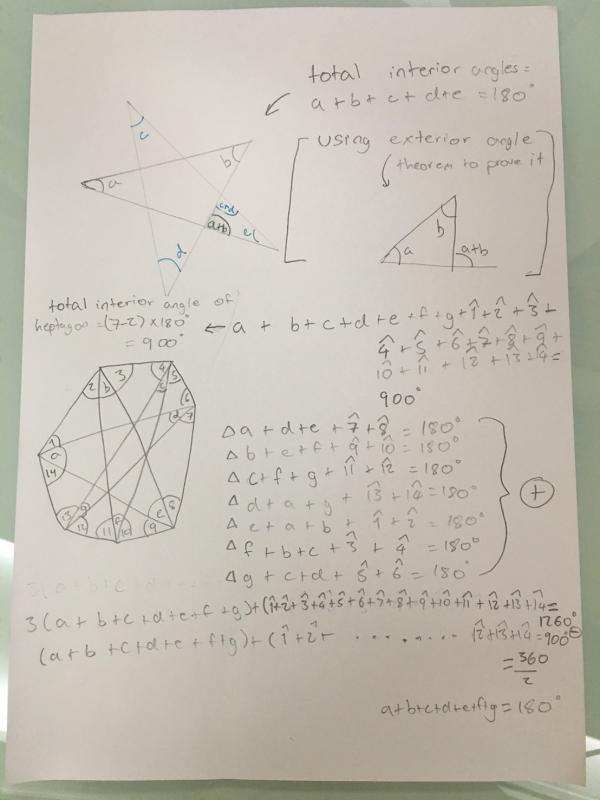 total interior angles =
a + b + c + d+e = 180°
using exterior angle
theorem to prove it
c
a
b
c+d
a+b
e
d
b
a
a+b
total interior angle of
heptagon = (7-2) × 180°
= 900°
← a + b+c+d+e+f+g+1̂+2̂+3̂+
4̂+5̂+6̂+7̂+8̂+9̂+
10̂+11̂+12̂+13̂+14̂=
900°
2 b 3 4 5
c 6
d 7
1
a
14
13 g 12 11 f 10 9 e 8
Δ a + d+e + 7̂+8̂ = 180°
Δ b+e+f+9̂+10̂ = 180°
Δ c+f+g+11̂+12̂ = 180°
Δ d+a+g+13̂+14̂ = 180°
Δ e+a+b+1̂+2̂ = 180°
Δ f+b+c+3̂+4̂ = 180°
Δ g+c+d+5̂+6̂ = 180°
+
3(a+b+c+d+e
3(a+b+c+d+e+f+g)+(1̂+2̂+3̂+4̂+5̂+6̂+7̂+8̂+9̂+10̂+11̂+12̂+13̂+14̂=
1260°
(a+b+c+d+e+f+g)+(1̂+2̂+ ........ 12̂+13̂+14̂=900° −
= 360/2
a+b+c+d+e+f+g = 180°